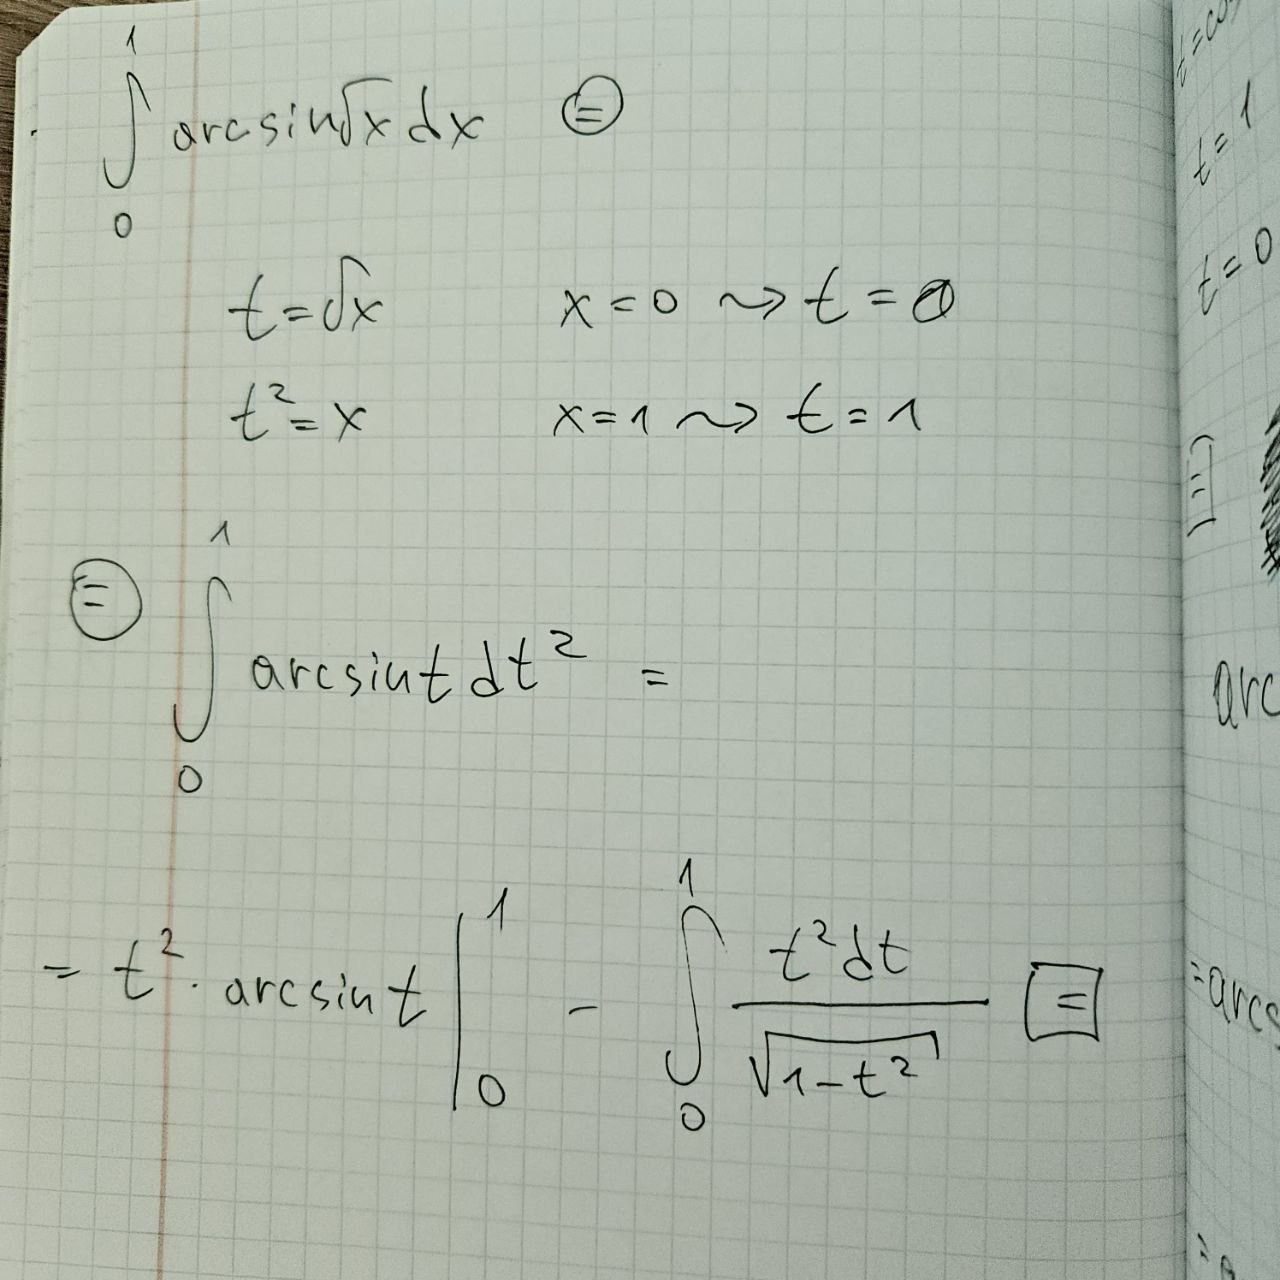 ∫₀¹ arcsin√x dx ⊜
t = √x x = 0 ⤳ t = 0
t² = x x = 1 ⤳ t = 1
⊜ ∫₀¹ arcsin t dt² =
= t² · arcsin t |₀¹ - ∫₀¹ t² dt / √(1 - t²) [=]
t = 1
t = 0
arc
= arcs